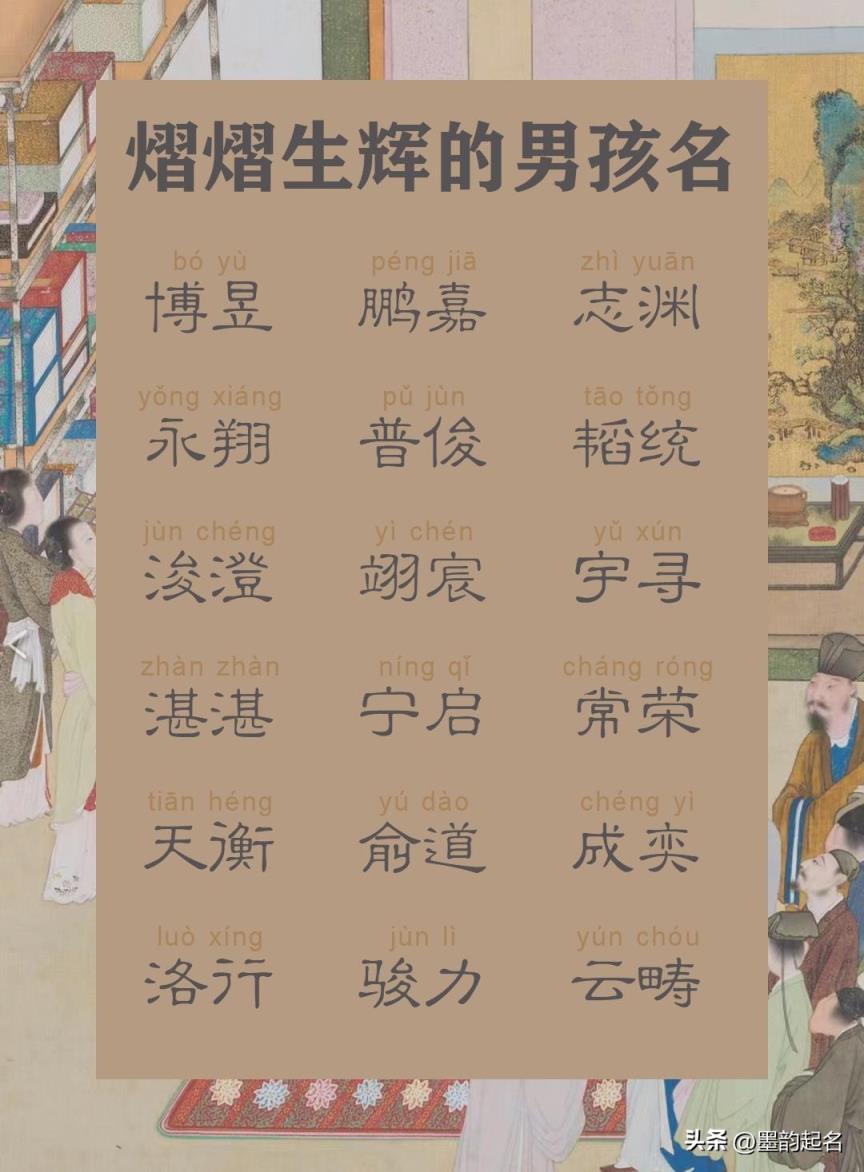 熠熠生辉的男孩名
bó yù péng jiā zhì yuān
博昱 鹏嘉 志渊
yǒng xiáng pǔ jùn tāo tǒng
永翔 普俊 韬统
jùn chéng yì chén yǔ xún
浚澄 翊宸 宇寻
zhàn zhàn níng qǐ cháng róng
湛湛 宁启 常荣
tiān héng yú dào chéng yì
天衡 俞道 成奕
luò xíng jùn lì yún chóu
洛行 骏力 云畴
头条 @墨韵起名